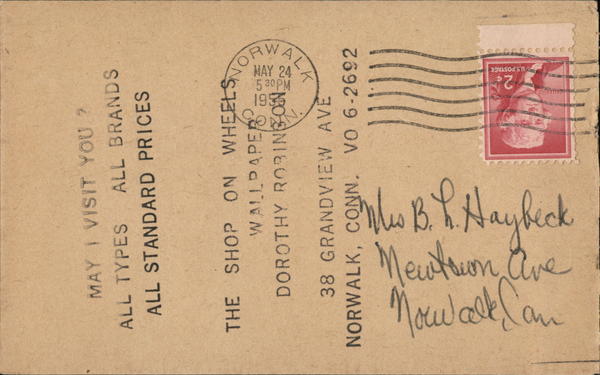 MAY I VISIT YOU?
ALL TYPES ALL BRANDS
ALL STANDARD PRICES
THE SHOP ON WHEELS
WALLPAPER
DOROTHY ROBINSON
38 GRANDVIEW AVE
NORWALK, CONN. VO 6-2692
NORWALK
MAY 24
5 30 PM
CONN.
U.S. POSTAGE
2¢
Mrs B. L. Haybeck
Newtown Ave
Norwalk, Conn